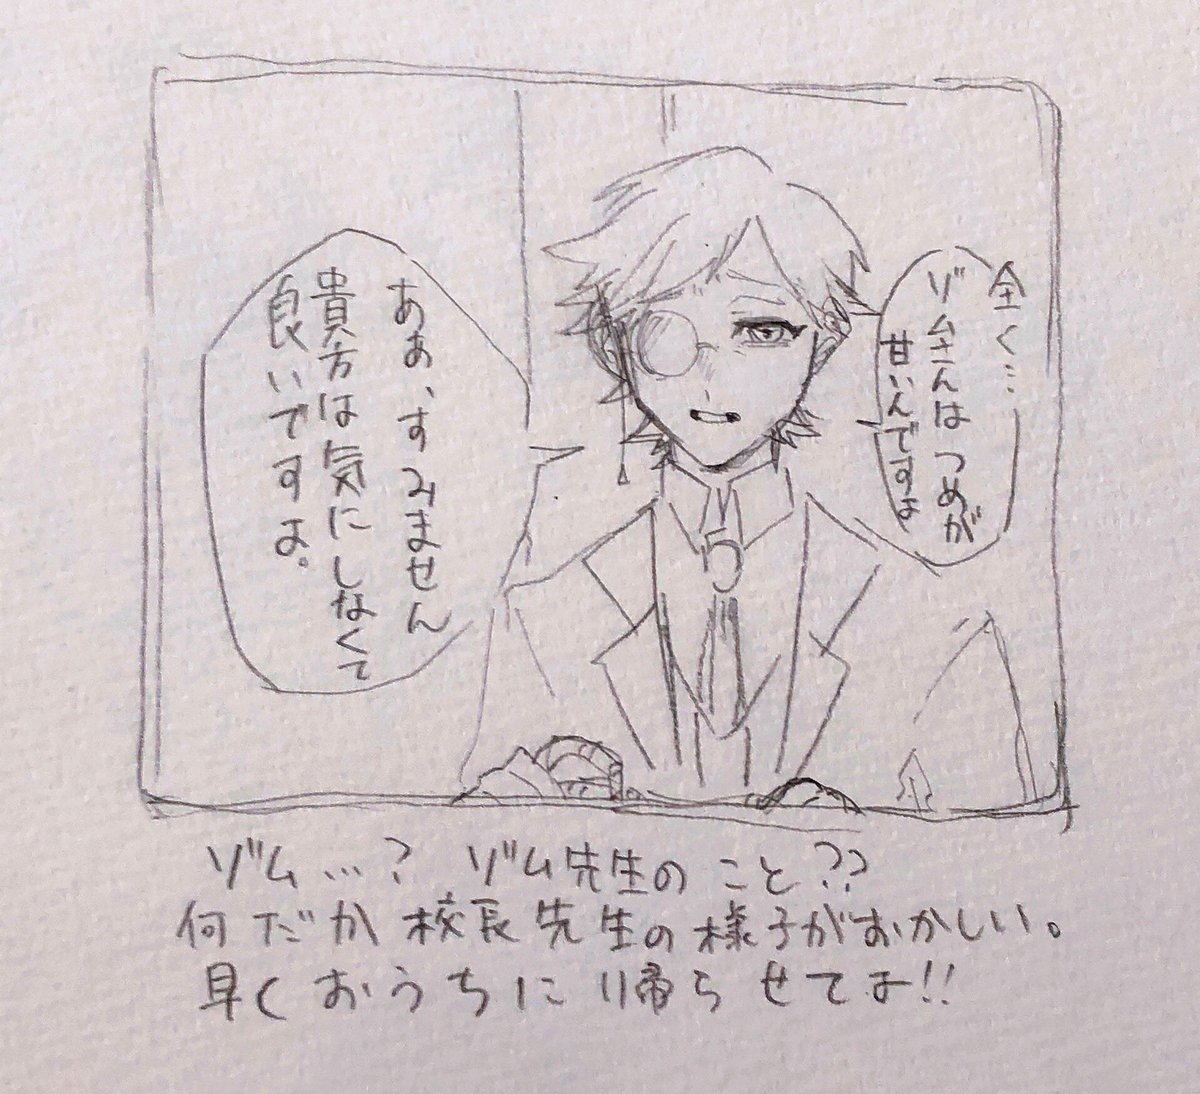 全く…
ゾムさんはつめが
甘いんですよ
ああ、すみません
貴方は気にしなくて
良いですよ。
ゾム…? ゾム先生のこと??
何だか校長先生の様子がおかしい。
早くおうちに帰らせてよ!!